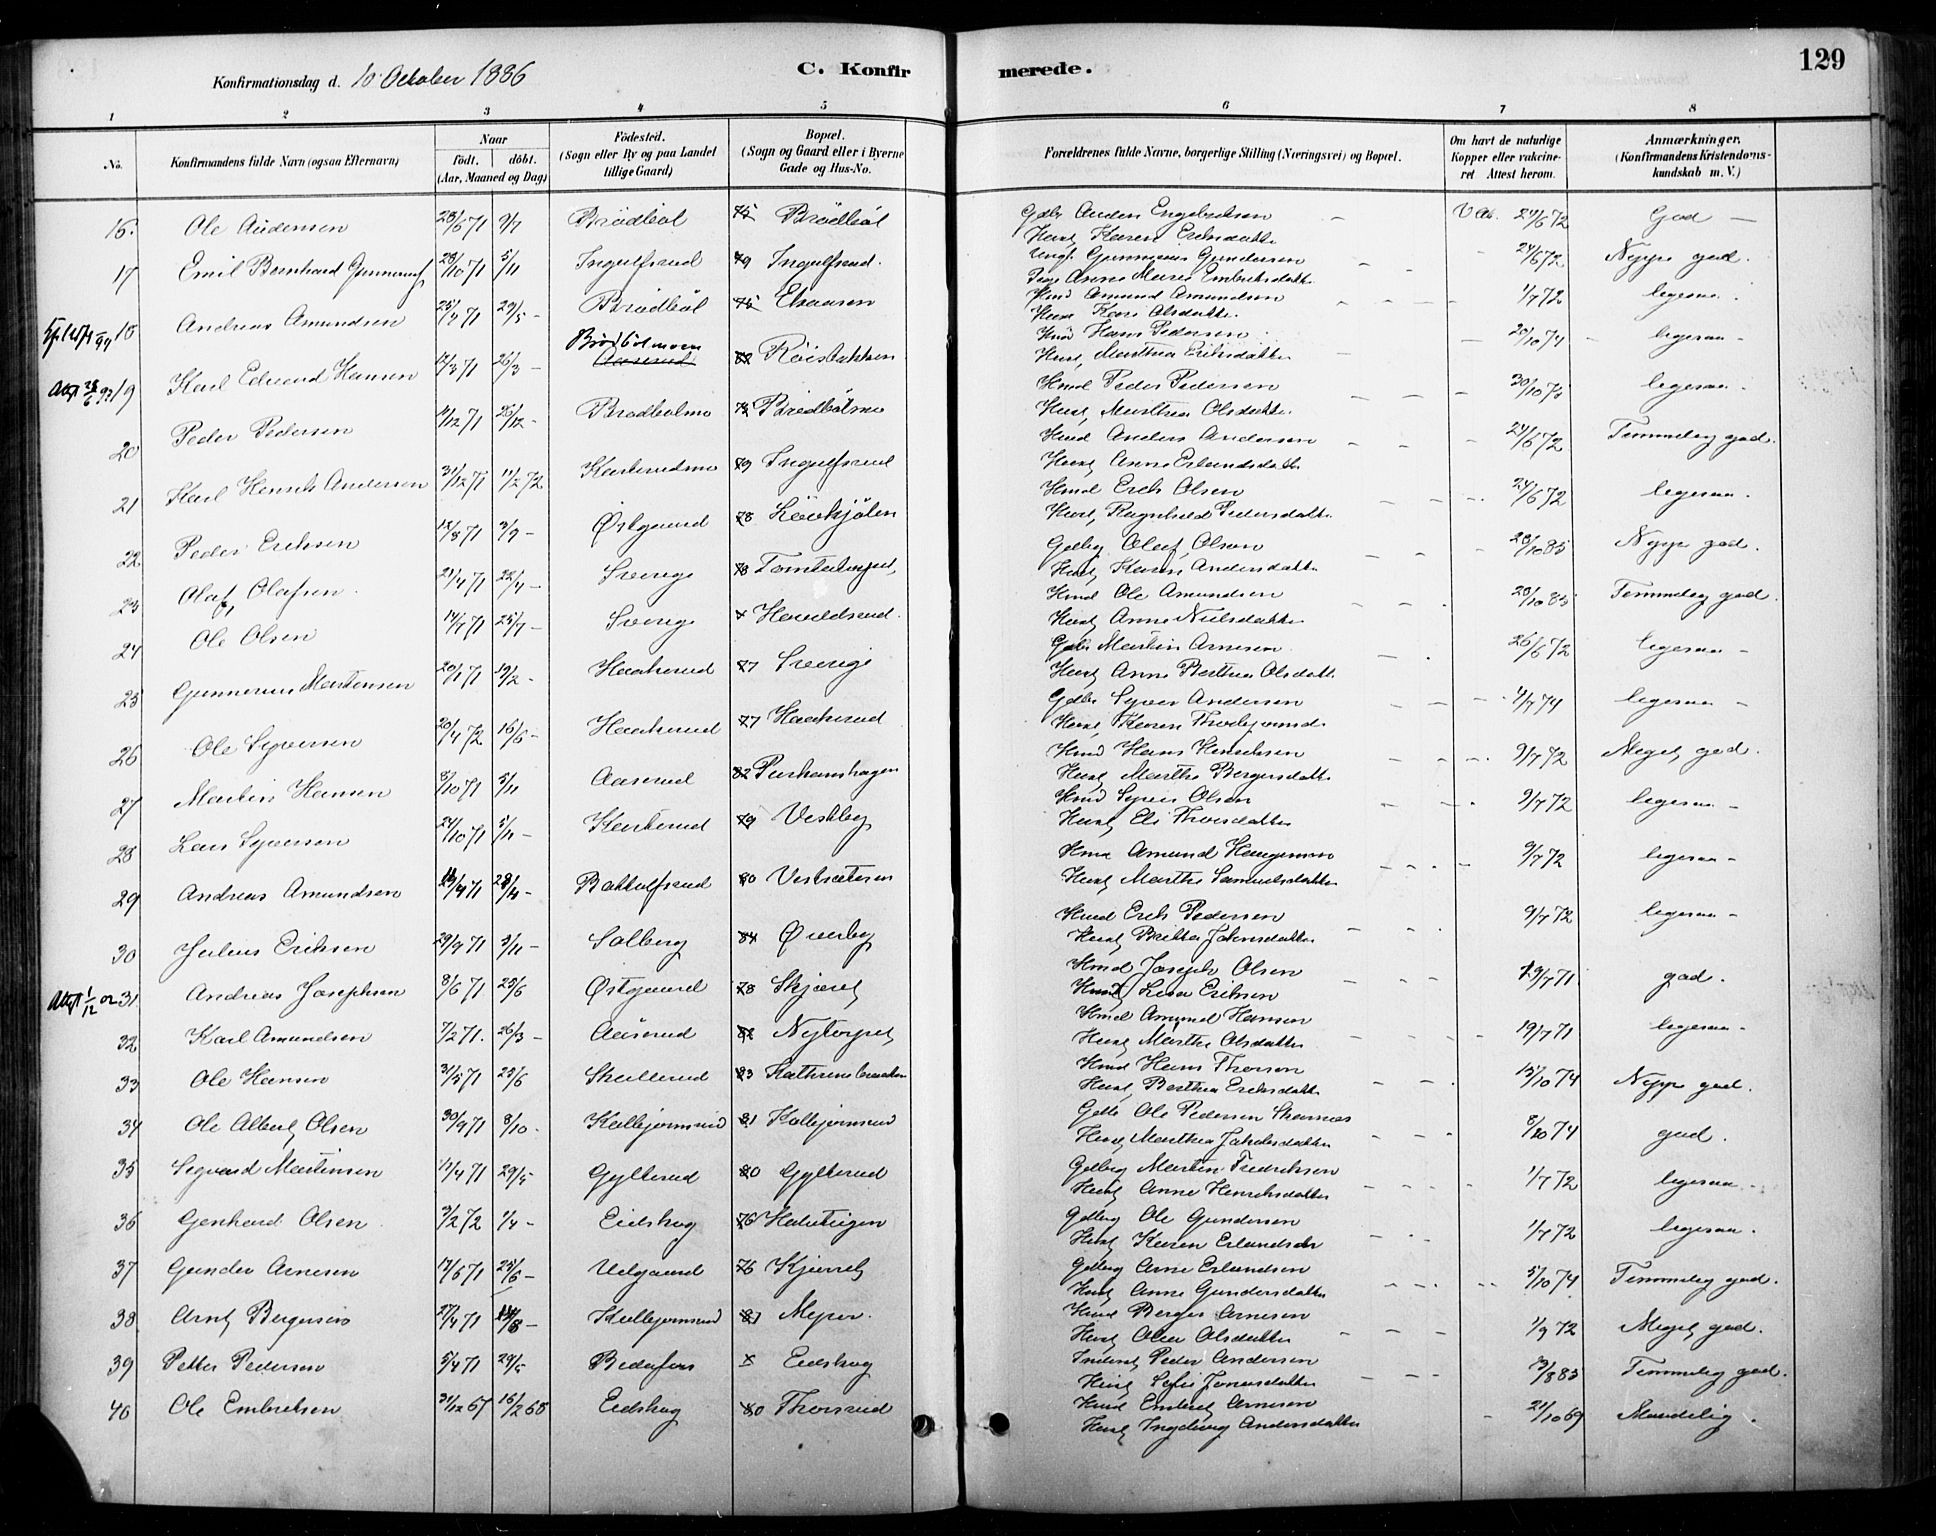 129
Konfirmationsdag d. 10 October 1886
C. Konfirmerede.
1 2 3 4 5 6 7 8
No.
Konfirmandens fulde Navn (ogsaa Efternavn)
Naar
födt. döbt.
(Aar, Maaned og Dag)
Födested.
(Sogn eller By og paa Landet tillige Gaard)
Bopæl.
(Sogn og Gaard eller i Byerne Gade og Hus-No.
Forældrenes fulde Navne, borgerlige Stilling (Næringsvei) og Bopæl.
Om havt de naturlige Kopper eller vakcineret Attest herom.
Anmærkninger.
(Konfirmandens Kristendomskundskab m. V.)
16. Ole Audensen 28/6 71 9/7 Brödböl 75 Brödböl Gdbr Auden Engebretsen Hust Karen Eriksdatter V At. 24/6 72 God
17 Emil Bernhard 28/10 71 5/11 Ingulfsrud 79 Ingulfsrud. Ungk. Gunnerius Gundersen Pige Anne Marie Embriksdatter 24/6 72 Nogre god.
18 Andreas Amundsen 25/4 71 29/5 - Brödböl 75 Hmd Amund Amundsen Hust Kari Olsdatter. 1/7 72 ligesaa.
19 Karl Edvard Hansen 12/3 71 26/3 - Brödbölmoen Aaserud Röisbakken Hmd Hans Pedersen Hust, Marthea Eriksdatter 20/10 74 ligesaa
20 Peder Pedersen 4/12 71 26/12 - Brødbølmo 75 Brødbølmo Hmd Peder Pedersen Hust, Marthea Olsdatter 30/10 75 ligesaa.
21 Karl Henrik Andersen 31/12 71 11/2 72 Kasterudmo 79 Ingulfsrud Hmd Anders Andersen Hust Anne Erlandsdatter 24/6 72 Temmelig god.
22 Peder Eriksen 15/8 71 3/9 - Østgaard 78 Lövhjölen Hmd Erik Olsen Hust, Ragnhild Pedersdatter 24/6 72 ligesaa.
23 Olaf Olafsen. 21/4 71 22/4 - Sverige 78 Gdbrg Olaf Olsen Hust Karen Andersdatter 28/10 85 god.
24 Ole Olsen 14/7 71 25/7 - Sverige Haraldsrud. Hmd Ole Amundsen Hust Anne Nielsdatter 20/10 85 Temmelig god.
25 Gunnerius Martinsen 20/1 71 19/2 - Haakerud 77 Sverige Gdbr Martin Arnesen. Hust Anne Berthea Olsdatt. 26/6 72 ligesaa -
26 Ole Syversen 20/4 72 16/6 - Haakerud 77 Haakerud Gdbr Syver Andersen Hust Karen 4/7 74 ligesaa -
27 Martin Hansen 8/10 71 5/11 Aaserud 82 Hmd Hans Henriksen Hust, Marthe Bergersdatter 9/7 72 Meget god.
28 Lars Syversen 24/10 71 5/11 - Kasterud 79 Vestby Hmd Syver Olsen Hust Eli Thorsdatter 9/7 72 ligesaa -
29 Andreas Amundsen 71 28/4 - Bakkulfsrud 80 Vestsæteren Hmd Amund Haugenmo Hust Marthe Samuelsdatter 9/7 72 ligesaa -
30 Julius Eriksen 29/9 71 5/11 - Solberg 84 Øverby Hmd Erik Pedersen Hust Britha Johnsdatter 9/7 72 ligesaa -
31 Andreas Josephsen 8/6 71 25/6 Østgaard 78 Skjæret Hmd Joseph Olsen Hust Lisa Eriksen 19/7 71 god.
32 Karl Amundsen 7/2 71. 26/3 - Aaserud 82 Nytorpet Hmd Amund Hansen Hust Marthe Olsdatter 19/7 71 ligesaa -
33 Ole Hansen 31/5 71 25/6 Skullerud 83 Hmd Hans Thorsen Hust, Berthea Eriksdatter 15/10 74 god.
34 Ole Albert Olsen 30/9 71 8/10 - Kallejernsrud 81 Kallejernsrud Gdbr Ole Pedersen Hust Marthea Jakobsdatter 8/10 74 god.
35 Sigvard Martinsen 11/4 71 29/5 Gylterud 80 Gylterud Gdbrg Martin Fredriksen Hust Anne Henriksdatter 1/7 72 ligesaa -
36 Gerhard Olsen 3/2 72 1/4 - Eidskog 76 Gdbrg Ole Gundersen Hust Karen Erlandsdr 1/7 72 ligesaa.
37 Gunder Arnesen 17/6 71 25/6 - Ulgaard 76 Gdbrg Arne Erlandsen Hust Anne Gundersdatter 5/10 74 Temmelig god.
38 Arnt Bergersen 27/4 71 /8 - Kallejernsrud 81 Myrer. Hmd Berger Arnesen Hust Olea Olsdatter 1/9 72 Meget god.
39 Petter Pedersen 5/4 71 29/5 Bedafors x Eidskog Inderst Peder Andersen Hust Sofie Jonasdatter 3/8 85 Temmelig god.
40 Ole Embretsen 31/12 67 16/2 68 Eidskog 80 Thorsrud Hmd Embret Arnesen Hust Ingeborg Andersdatter 21/10 69 Maadelig.